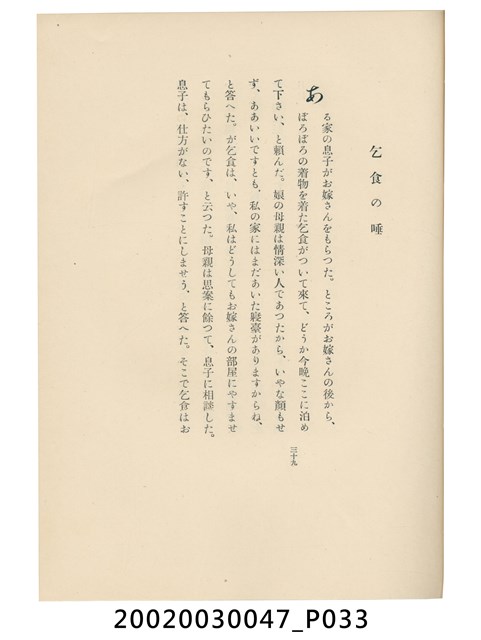 乞食の唾
ある家の息子がお嫁さんをもらつた。ところがお嫁さんの後から、
ぼろぼろの着物を着た乞食がついて來て、どうか今晩ここに泊め
て下さい、と賴んだ。娘の母親は情深い人であつたから、いやな顏もせ
ず、ああいいですとも、私の家にはまだあいた寢臺がありますからね、
と答へた。が乞食は、いや、私はどうしてもお嫁さんの部屋にやすませ
てもらひたいのです、と云つた。母親は思案に餘つて、息子に相談した。
息子は、仕方がない、許すことにしませう、と答へた。そこで乞食はお
三十九
20020030047_P033